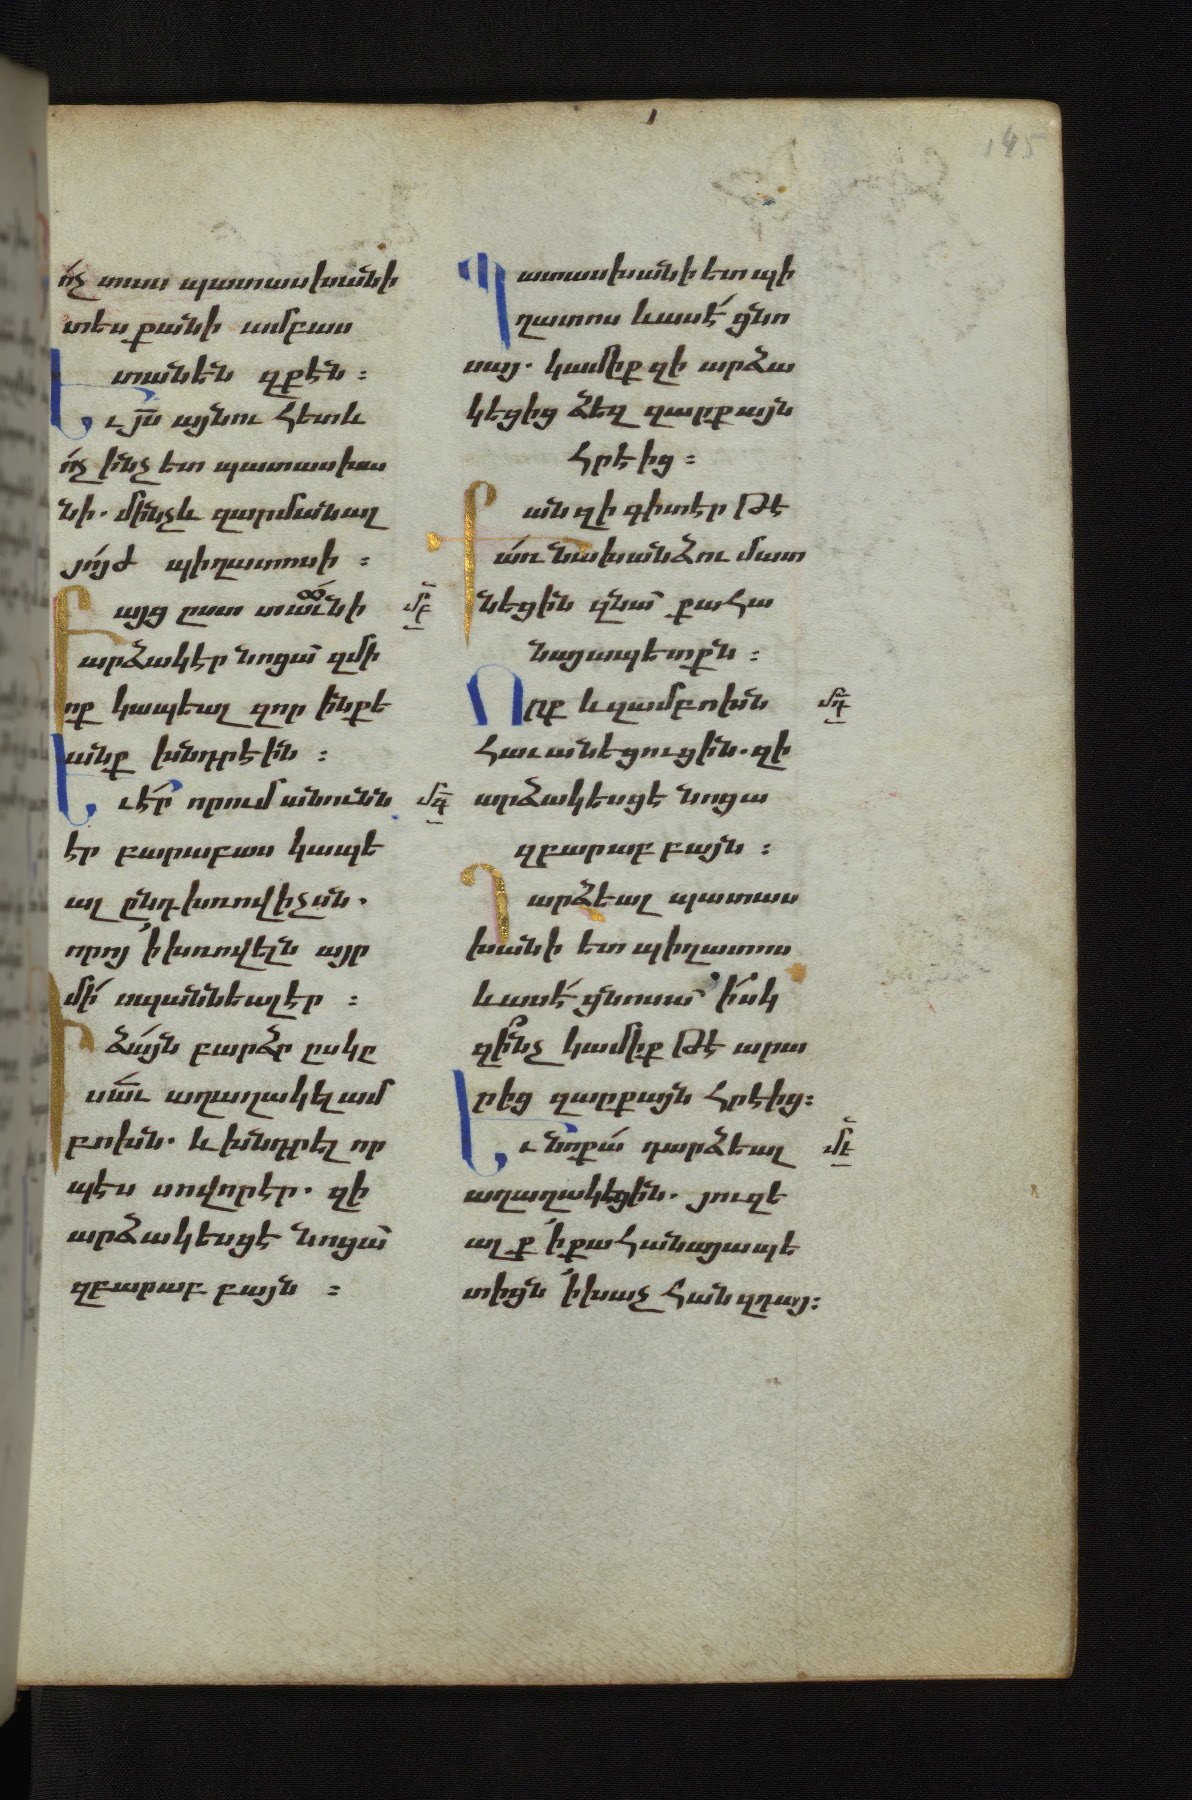 145
ոչ տաս պատասխանի
տես քանի ամբաս
տանեն զքէն :
Եւ յս այնու հետև
ոչ ինչ ետ պատասխա
նի. մինչև զարմանալ
յոյժ պիղատոսի :
Բայց ըստ տաւնի
արձակէր նոցա զմի
ոք կապեալ զոր ինքե
անք խնդրէին :
Եւ էր որում անունն
էր բարաբաս կապե
ալ ընդ խռովիչսն.
որոյ ի խռովելն այր
մի սպաննեալ էր :
Ի ձայն բարձր ըսկը
սաւ աղաղակել ամ
բոխն. և խնդրել որ
պէս սովորէր. զի
արձակեսցէ նոցա
զբարաբ բայն :
մբ
մգ
Պատասխանի ետ պի
ղատոս և ասէ ցնո
սայ. կամիք զի արձա
կեցից ձեզ զարքայն
հրէից :
Քանզի գիտէր թէ
առ նախանձու մատ
նեցին զնա քահա
նայապետքն :
Որք և զամբոխն
հաւանեցուցին. զի
արձակեսցե նոցա
զբարաբ բայն :
Դարձեալ պատաս
խանի ետ պիղատոս
և ասէ ցնոսա իսկ
զինչ կամիք թէ արա
րից զարքայն հրէից:
Եւ նոքա դարձեալ
աղաղակեցին. յուզե
ալ ք ի քահանայապե
տիցն ի խաչ հան զդայ:
մդ
մե